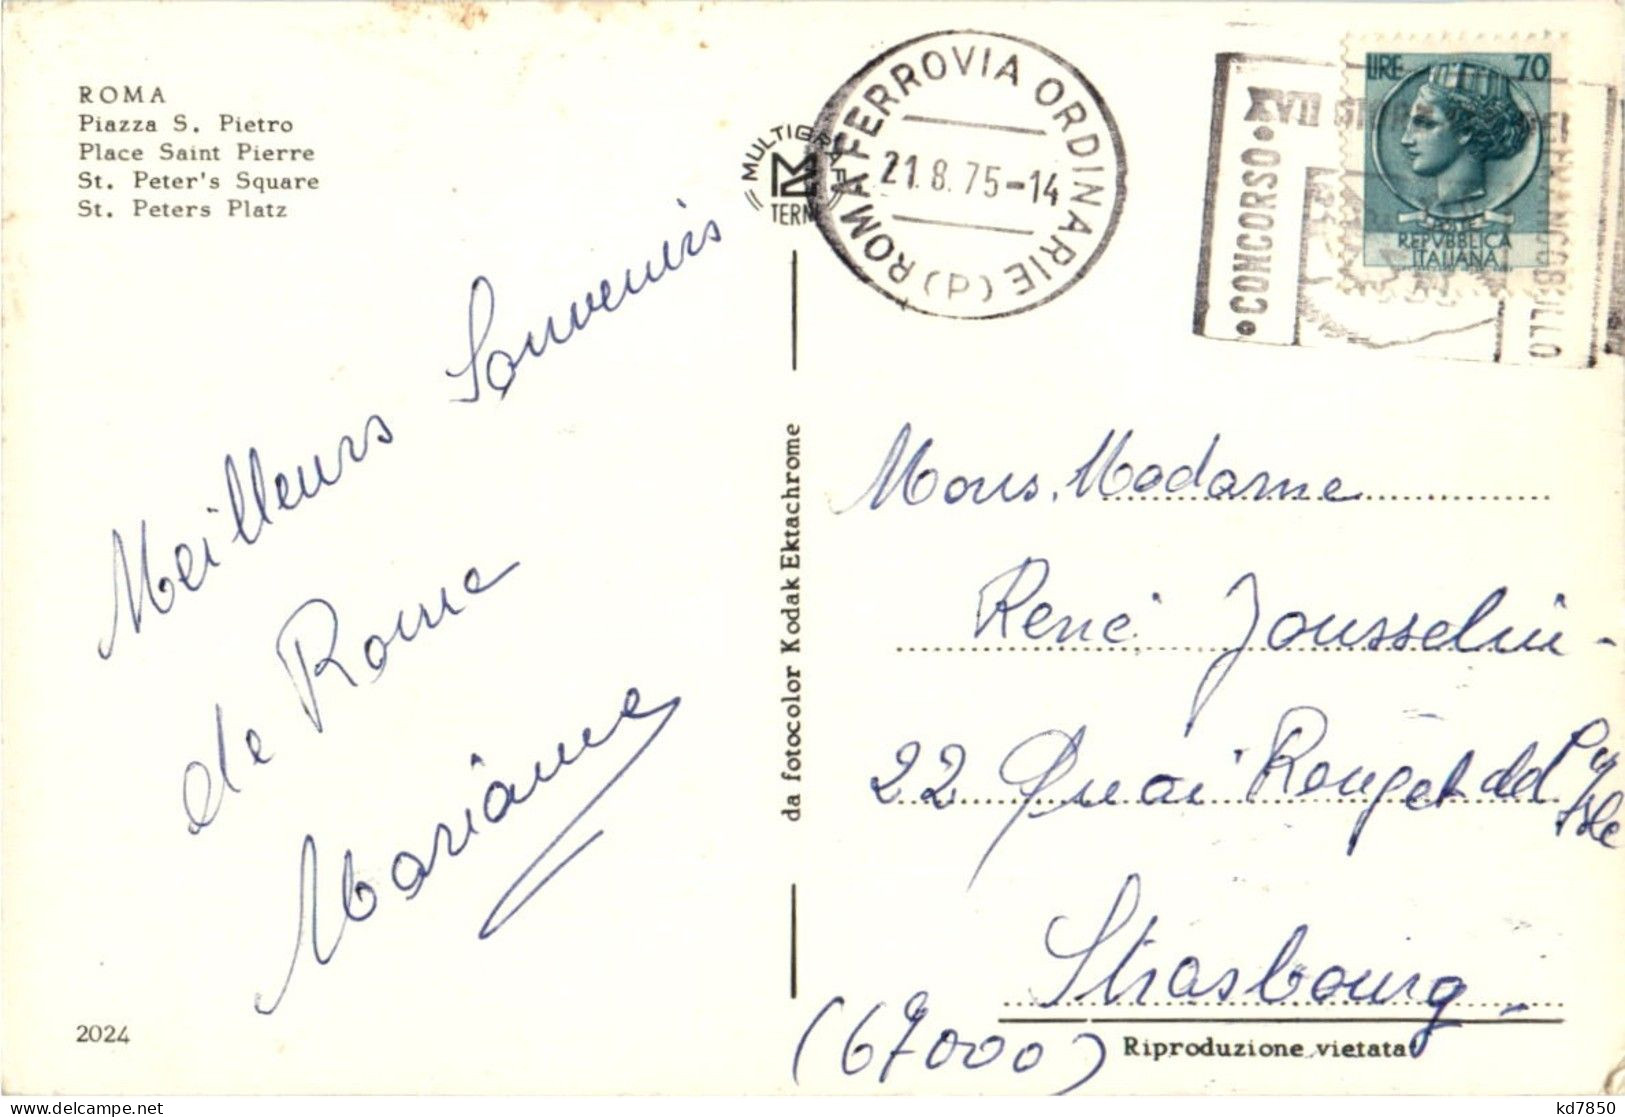 ROMA
Piazza S. Pietro
Place Saint Pierre
St. Peter's Square
St. Peters Platz
Meilleurs Souvenirs
de Rome
Marianne
2024
MULTIGRAF
TERNI
da fotocolor Kodak Ektachrome
ROMA FERROVIA ORDINARIE (P)
21.8.75-14
CONCORSO
XVII
FRANCOBOLLO
LIRE 70
POSTE
REPVBBLICA
ITALIANA
Mons. Madame
René Jousselin-
22 Quai Rouget
Strasbourg-
(67000)
Riproduzione vietata
kd7850